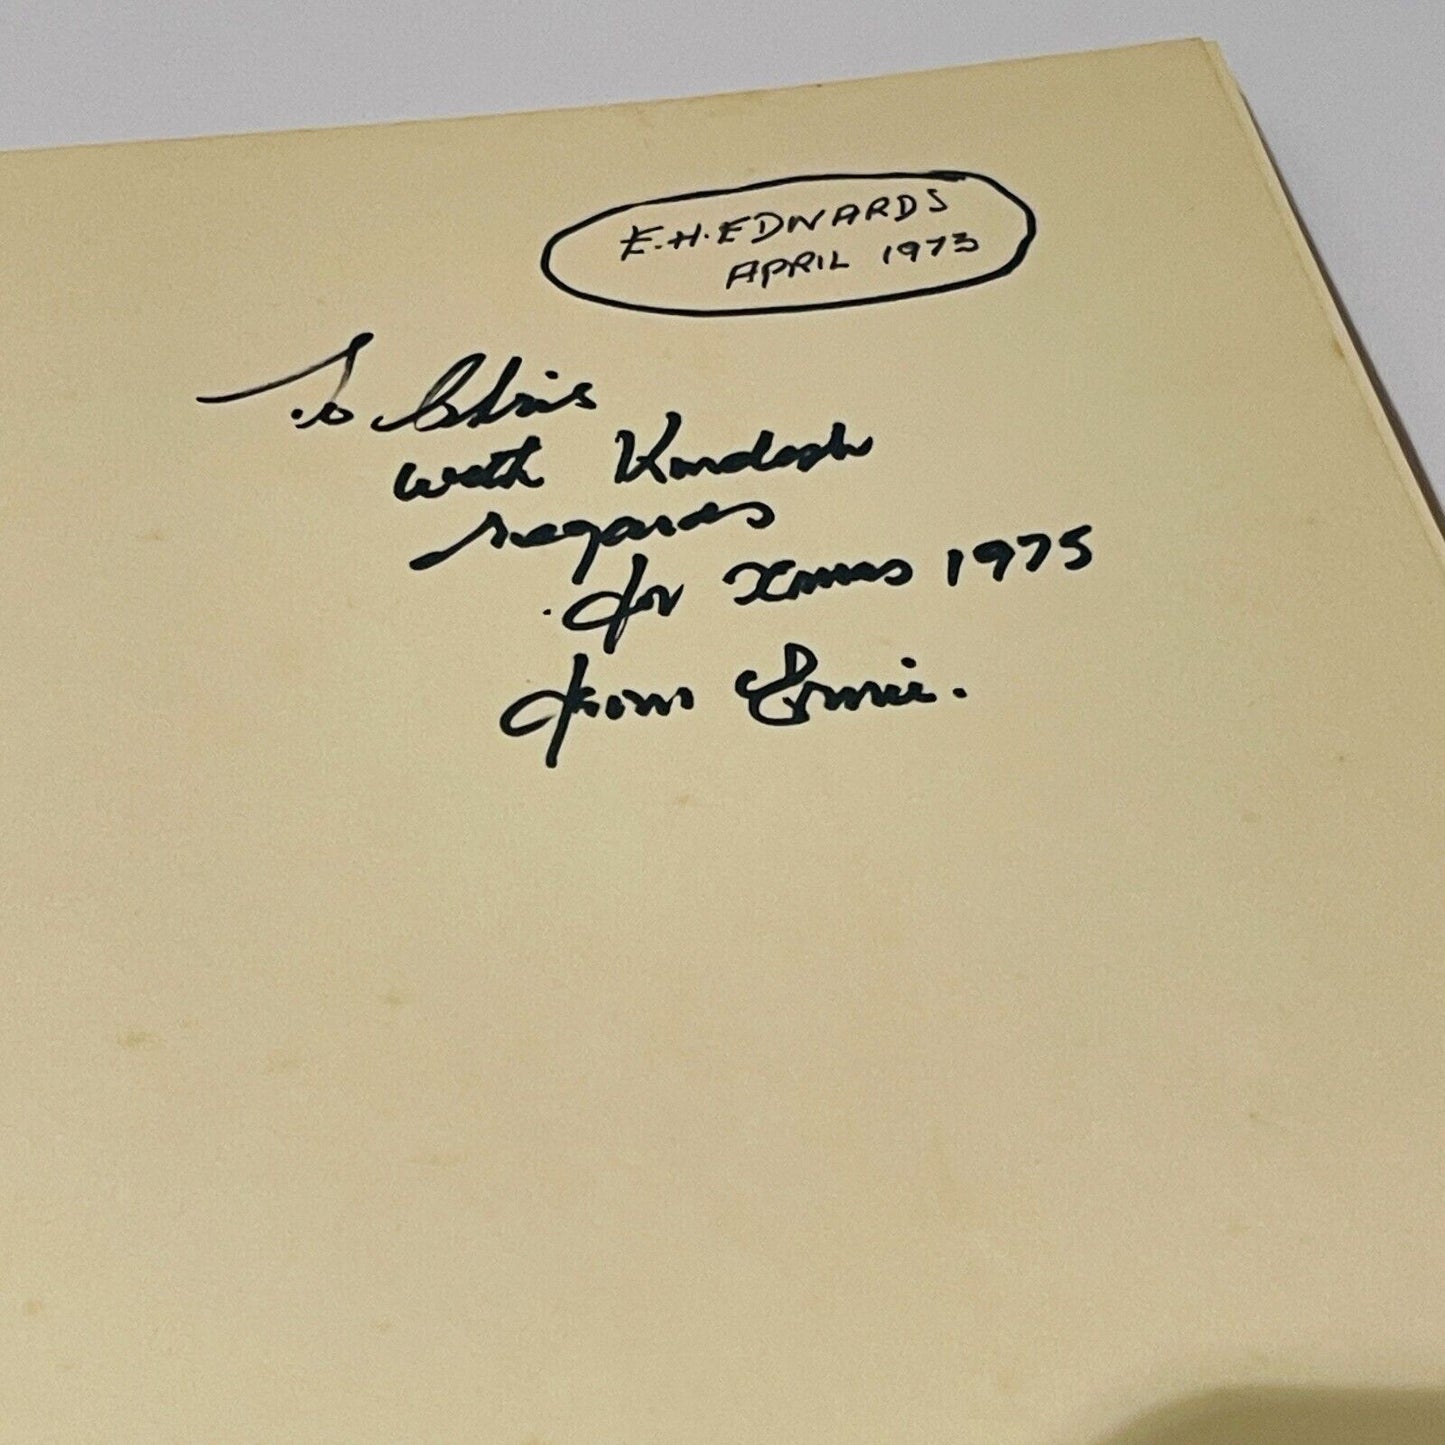 E.H. EDWARDS
APRIL 1973
To Chris
with Kindest
regards
for Xmas 1975
from Ernie.